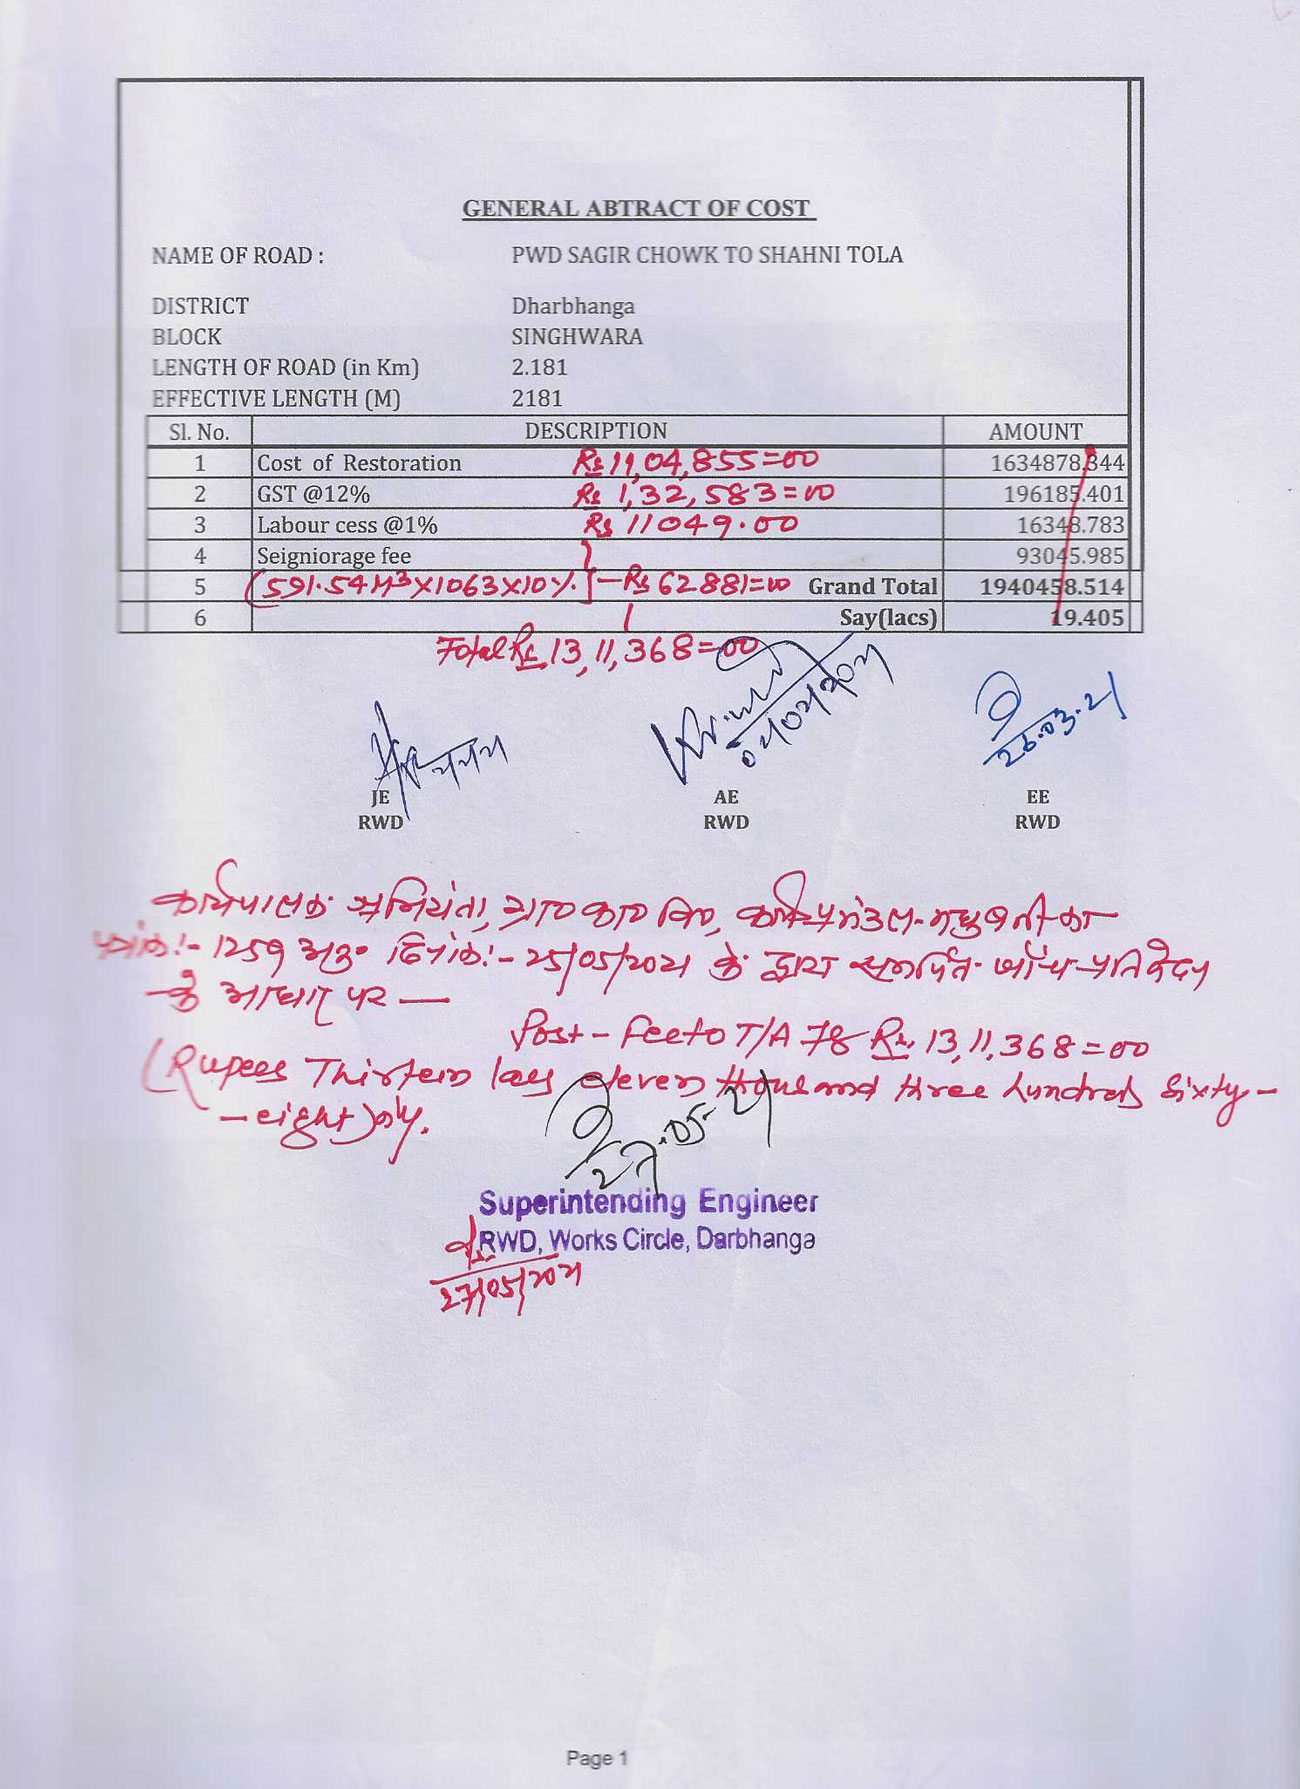 GENERAL ABTRACT OF COST
NAME OF ROAD : PWD SAGIR CHOWK TO SHAHNI TOLA
DISTRICT Dharbhanga
BLOCK SINGHWARA
LENGTH OF ROAD (in Km) 2.181
EFFECTIVE LENGTH (M) 2181
Sl. No. DESCRIPTION AMOUNT
1 Cost of Restoration Rs 11,04,855=00 1634878.344
2 GST @12% Rs 1,32,583=00 196185.401
3 Labour cess @1% Rs 11049.00 16348.783
4 Seigniorage fee 93045.985
5 (591.54M3X1063X10%. - Rs 62881=00 Grand Total 1940458.514
6 Say(lacs) 19.405
Total Rs. 13,11,368=00
26.03.21
JE AE EE
RWD RWD RWD
कार्यपालक अभियंता, ग्रा० का० वि०, कार्य प्रमंडल-मधुबनी का
पत्रांक:- 1259 अनु० दिनांक:- 25/05/2021 के द्वारा समर्पित जाँच प्रतिवेदन
के आधार पर —
Post- T/A Rs. 13,11,368=00
(Rupees Thirteen lacs eleven thousand three hundred sixty-
- eight) only.
27.05.21
Superintending Engineer
RWD, Works Circle, Darbhanga
27/05/2021
Page 1